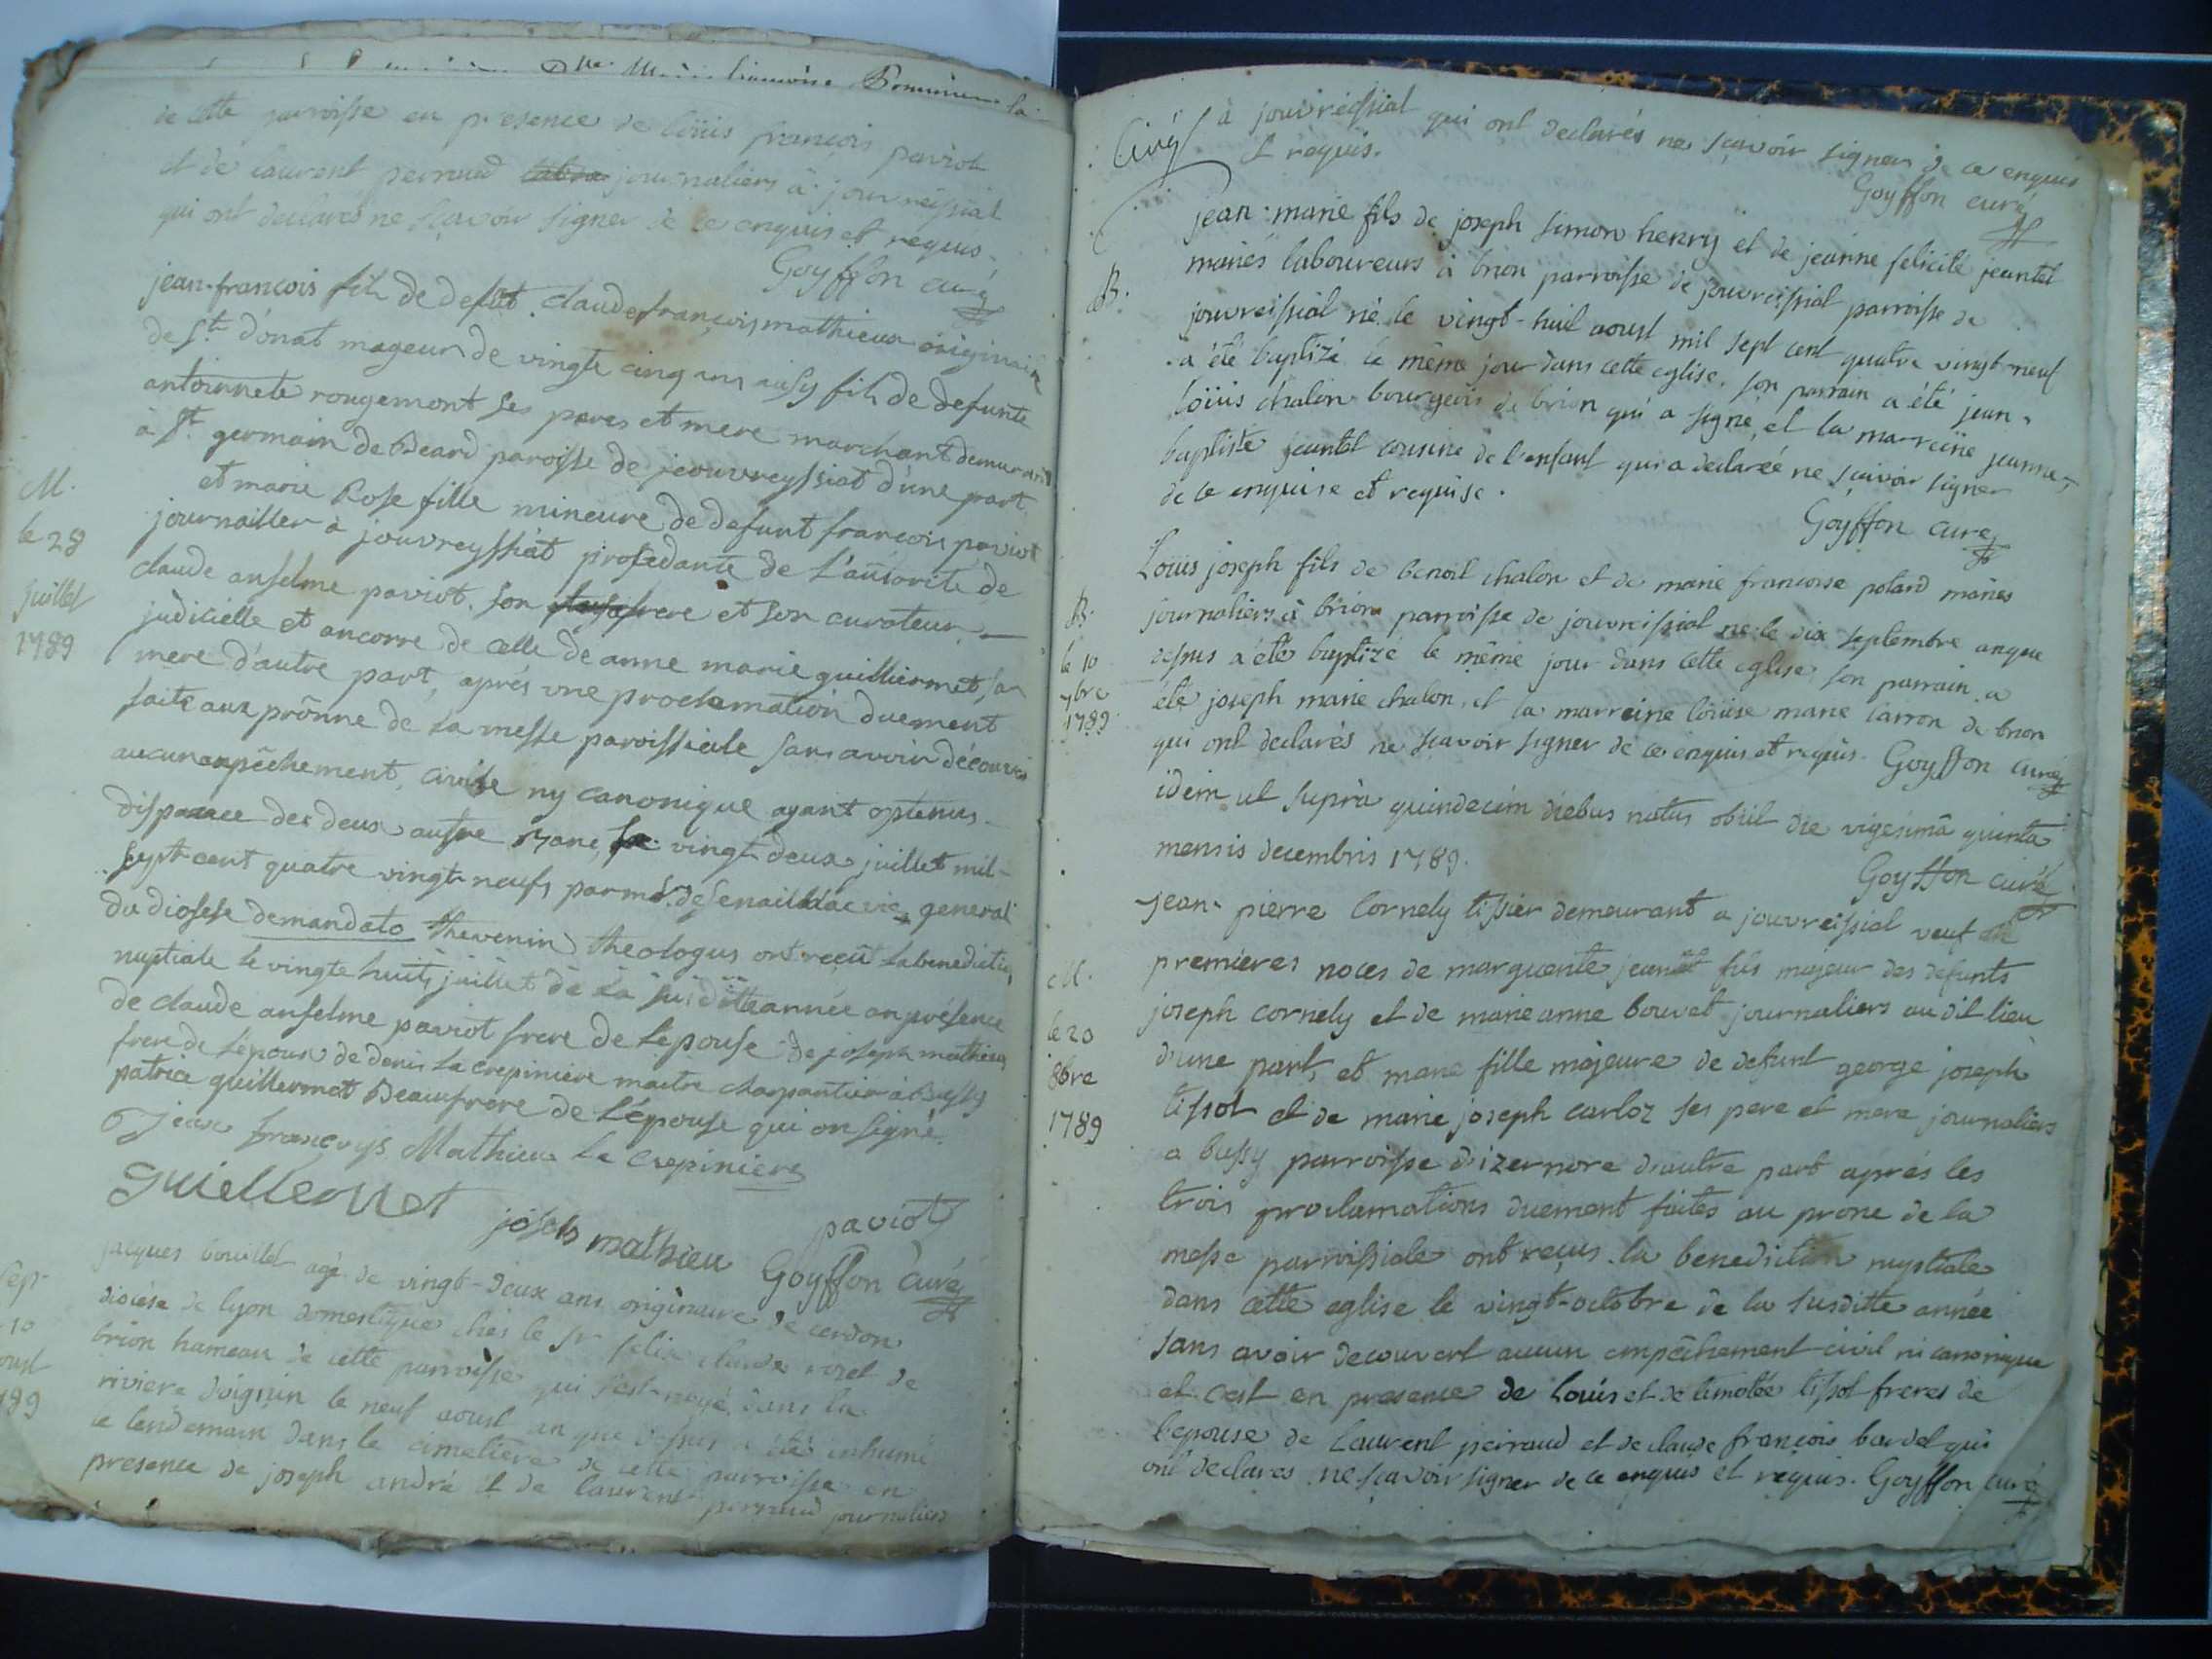 de cette parroisse en presence de loüis françois paviot
et de laurent perraud journaliers à jouvreissiat
qui ont declarés ne sçavoir signer de ce enquis et requis.
Goyffon curé
jean-francois fils de defunt claude françois mathieu originaire
de St. donat mageur de vingte cinq ans aussy fils de defunte
antoinnete rougemont ses peres et mere marchant demurant
à St. germain de Beard paroisse de jeouvreyssiat d'une part
M.
le 28
juillet
1789
et marie Rose fille mineure de defunt francois paviot
journallier à jouvreyssiat prosedante de l'autorité de
claude anselme paviot son frere et son curateur
judicielle et ancorre de celle de anne marie guilliermet sa
mere d'autre part, aprés une proclamation duement
faite aux prônne de la messe paroissiale sans avoir découvri
aucun anpêchement civile ny canonique ayant optenus
dispance des deux austre Bans, le vingt deux juillet mil
sept cent quatre vingt neufs par mr. de vic general
du diosese demandato thevenin theologus ont reçeüt la benediction
nuptiale le vingte huit juillet de la susditte année an présence
de claude anselme paviot frere de l'épouse de joseph mathieu
frere de l'epoux de denis la crepiniere maitre charpantier à Bussy
patrice guillermet Beaufrere de l'épouse qui on signé.
jean françoys Mathieu la crepiniere
guillermet
joseph mathieu paviot
Goyffon curé
Sep.
10
oust
789
jacques bouillet agé de vingt-deux ans originaire de cerdon
diocèse de lyon domestique chés le sr felix claude rozet de
brion hameau de cette parroisse qui s'est noyé dans la
riviere doignin le neuf aoust an que dessus a été inhumé
le lendemain dans le cimetière de cette parroisse en
presence de joseph andré et de laurent perraud journaliers
à jouvreissiat qui ont declarés ne sçavoir signer de ce enquis
et requis.
Goyffon curé
B.
jean-marie fils de joseph simon henry et de jeanne felicité jeantet
mariés laboureurs à brion parroisse de jouvreissiat parroisse de
jouvreissiat né le vingt-huit aoust mil sept cent quatre vingt neuf
a été baptizé le même jour dans cette eglise. son parrain a été jean
loüis chalon bourgeois de brion qui a signé, et la marreine jeanne
baptiste jeantet cousine de l'enfant qui a declarée ne sçavoir signer
de ce enquise et requise.
Goyffon curé
B.
le 10
7bre
1789
Loüis joseph fils de benoit chalon et de marie francoise poland mariés
journaliers à brion parroisse de jouvreissiat né le dix septembre anque
dessus a été baptizé le même jour dans cette eglise, son parrain a
été joseph marie chalon, et la marreine loüise marie carron de brion
qui ont declarés ne sçavoir signer de ce enquis et requis. Goyffon curé
idem ut suprà quindecim diebus natus obiit die vigesimâ quinta
mensis decembris 1789.
Goyffon curé
M.
le 20
8bre
1789
jean-pierre Cornely tissier demeurant a jouvreissiat veuf en
premieres noces de marguerite jeantet fils majeur des defunts
joseph cornely et de marie anne bouvet journaliers au dit lieu
d'une part, et marie fille majeure de defunt george joseph
tissot et de marie joseph carloz ses pere et mere journaliers
a bussy parroisse d'izernore d'autre part aprés les
trois proclamations duement faites au prone de la
messe parroissiale ont reçus la benediction nuptiale
dans cette eglise le vingt-octobre de la susditte année
sans avoir decouvert aucun empêchement civil ni canonique
et c'est en presence de Louis et de timotée tissot freres de
l'epouse de Laurent perraud et de claude françois bardet qui
ont declares ne sçavoir signer de ce enquis et requis. Goyffon curé